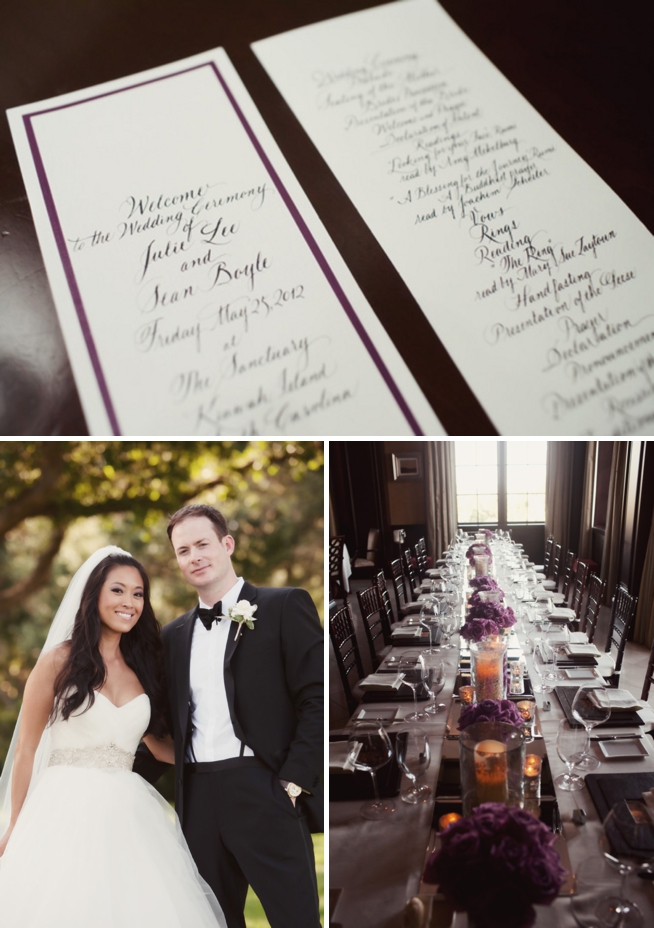 Welcome
to the Wedding Ceremony
of
Julie Lee
and
Sean Boyle
Friday May 25, 2012
at
The Sanctuary
Kiawah Island
Carolina
Wedding Ceremony
Prelude
Seating of the Mothers
Bridal Procession
Presentation of the Bride
Welcome and Prayer
Declaration of Intent
Readings
read by
"A Blessing for the Journey
A Buddhist Prayer
read by Joachim
Vows
Rings
Reading
"The Ring"
read by Mary Sue Zaytoun
Handfasting
Presentation of the Geese
Prayer
Declaration
Pronouncement
Presentation of